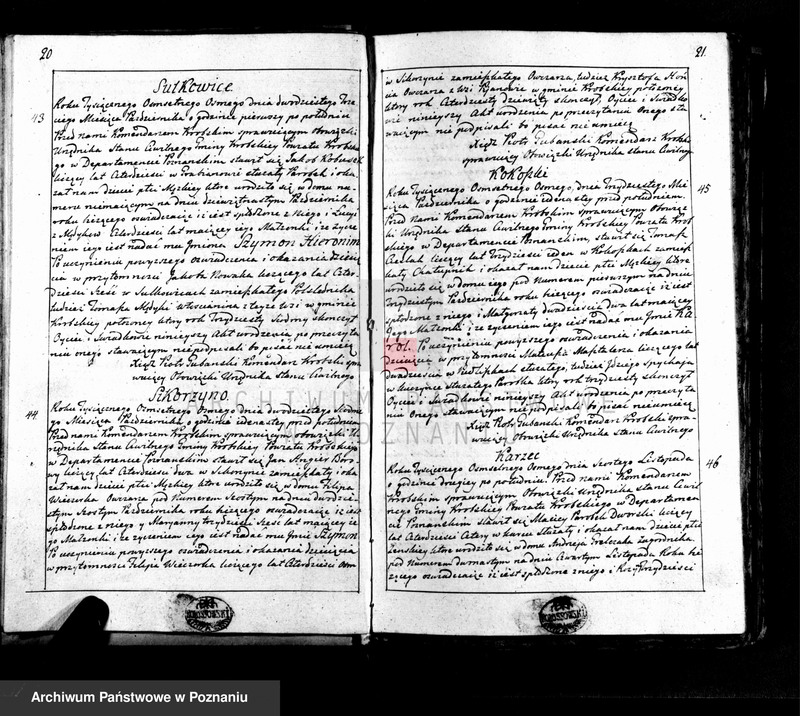 20
Sulkowice
43
Roku Tysiącznego Osmsetnego Osmego dnia dwudziestego Trze
ciego Miesiąca Października o godzinie pierwszy po południu
Przed nami Komendarzem Krobskim sprawuiącym obowiązki
Urzędnika Stanu Cywilnego Gminy Krobskiy Powiatu Krobskie
go w Departamencie Poznanskim stawił się Jakob
liczący lat Czterdzieści w służący Parobek i oka
zał nam dziecie płci Męzkiey ktore urodziło się w domu nu
meru niemaiącym na dniu dwudziestym Października
roku bieżącego oswiadczaiąc iż iest spłodzone z niego i Łucyi
z Czterdzieści lat maiącey iego Małżonki, i że życze
niem iego iest nadać mu Jmiona Szymon Hieronim
Po uczynieniu powyższego oswiadczenia i okazaniu dziecię
cia w przytomności Jakoba Nowaka liczącego lat Czter
dzieści Sześć w Sulkowicach zamieszkałego
tudzież Tomasza włościanina z teyże wsi w gminie
Krobskiy położoney który rok Trzydziesty Siodmy skończył
Oyciec i Swiadkowie ninieyszy Akt urodzenia po przeczyta
niu onego stawaiącym niepodpisali bo pisać nie umieią
Xiądz Piotr Lubanski Komendarz Krobski spra
wuiący Obowiązki Urzędnika Stanu Cywilnego
Sikorzyno
44
Roku Tysiącznego Osmsetnego Osmego dnia dwudziestego Siodme
go Miesiąca Października, o godzinie iedenastey przed południem
Przed nami Komendarzem Krobskim sprawuiącym obowiązki U
rzędnika Stanu Cywilnego Gminy Krobskiy Powiatu Krobskiego
w Departamencie Poznanskim stawił się Jan
liczący lat Czterdzieści dwa w Sikorzynie zamieszkały i oka
zał nam dziecie płci Męzkiey ktore urodziło się w domu Filipa
Wieczorka Owczarza pod Numerem Szostym na dniu dwudzie
stym Szostym Października roku bieżącego oswiadczaiąc iż iest
spłodzone z niego y Maryanny trzydzieści Sześć lat maiącey ie
go Małżonki i że życzeniem iego iest nadać mu Jmie Szymon
Po uczynieniu powyższego oswiadczenia i okazaniu dziecięcia
w przytomności Filipa Wieczorka liczącego lat Czterdzieści Osm
21
w Sikorzynie zamieszkałego Owczarza, tudzież Krzysztofa
Owczarza z wsi w gminie Krobskiy położoney
który rok Czterdziesty dziewiąty skończył, Oyciec i Swiadko
wie ninieyszy Akt urodzenia po przeczytaniu onego sta
waiącym niepodpisali bo pisać nie umieią
Xiądz Piotr Lubanski Komendarz Krobski
sprawuiący Obowiązki Urzędnika Stanu Cywilnego
Kokoszki
45
Roku Tysiącznego Osmsetnego Osmego, dnia Trzydziestego Mie
siąca Października o godzinie iedenastey przed południem
Przed nami Komendarzem Krobskim sprawuiącym Obowiąz
ki Urzędnika Stanu Cywilnego Gminy Krobskiey Powiatu Krob
skiego w Departamencie Poznanskim, stawił się Tomasz
liczący lat Trzydzieści ieden w Kokoszkach zamiesz
kały Chałupnik i okazał nam dziecie płci Męzkiey ktore
urodziło się w domu iego pod Numerem pierwszym na dniu
Trzydziestym Października roku bieżącego oswiadczaiąc iż iest
spłodzone z niego i Małgorzaty dwadzieścia dwa lat maiącey
iego Małżonki, i że życzeniem iego iest nadać mu Jmie Ka
rol. Po uczynieniu powyższego oswiadczenia i okazaniu
dziecięcia w przytomności Mateusza liczącego lat
dwadzieścia w służącego, tudzież
w służącego Parobka który rok trzydziesty skończył
Oyciec i Swiadkowie ninieyszy Akt urodzenia po przeczyta
niu Onego stawaiącym niepodpisali bo pisać nieumieią
Xiądz Piotr Lubanski Komendarz Krobski spra
wuiący Obowiązki Urzędnika Stanu Cywilnego
Karzec
46
Roku Tysiącznego Osmsetnego Osmego dnia Szostego Listopada
o godzinie drugiey po południu. Przed nami Komendarzem
Krobskim sprawuiącym Obowiązki Urzędnika stanu Cywil
nego Gminy Krobskiey Powiatu Krobskiego w Departamen
cie Poznanskim stawił się Maciey Parobek Dworski liczący
lat Czterdzieści Cztery w Karcu Służący i okazał nam dziecie płci
Zenskiey ktore urodziło się w domu Andrzeia zagrodnika
pod Numerem dwunastym na dniu Czwartym Listopada Roku bie
żącego oswiadczaiąc iż iest spłodzone z niego i trzydzieści
ARCHIWUM PAŃSTWOWE
W POZNANIU
Archiwum Państwowe w Poznaniu